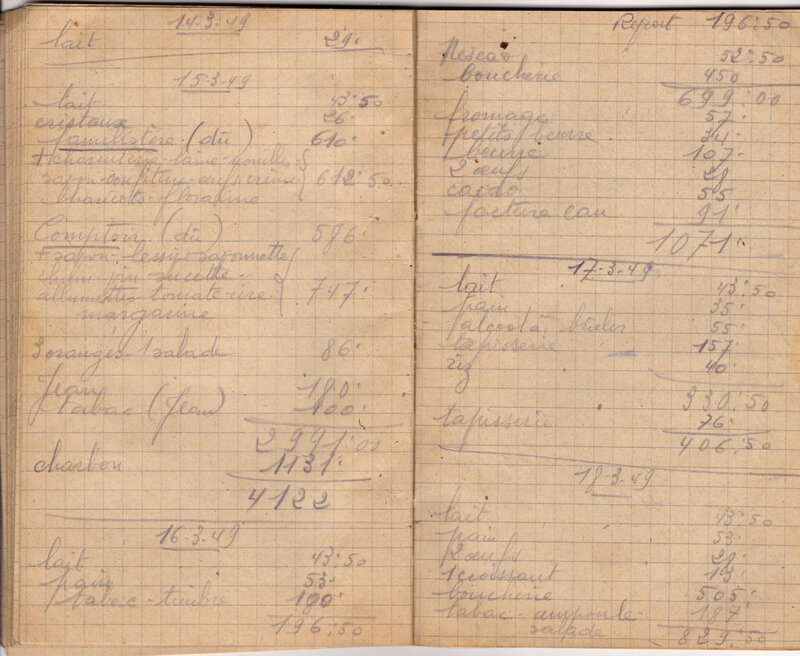 14-3-49
lait 29.
15-3-49
lait 43.50
cristaux 26.
familistère (dû) 610.
+ charcuterie laine nouilles
savon confiture œufs crème 612.50
haricots floraline
Comptoir (dû) 586.
+ savon lessive savonnette
rhum sucette
allumettes tomate cire 747.
margarine
3 oranges 1 salade 86.
Jean 180.
tabac (Jean) 100.
2991.00
charbon 1131.
4122
16-3-49
lait 43.50
pain 53.
tabac-timbre 100.
196.50
Report 196.50
Nescao 52.50
boucherie 450
699.00
fromage 57.
petits beurre 34.
beurre 107.
2 œufs 28
cacao 55
facture eau 91.
1071.
17-3-49
lait 43.50
pain 35.
alcool à brûler 55.
tapisserie 157
riz 40.
330.50
tapisserie 76.
406.50
18-3-49
lait 43.50
pain 53.
2 œufs 28.
1 croissant 13.
boucherie 505.
tabac-ampoule 187
salade
829.50